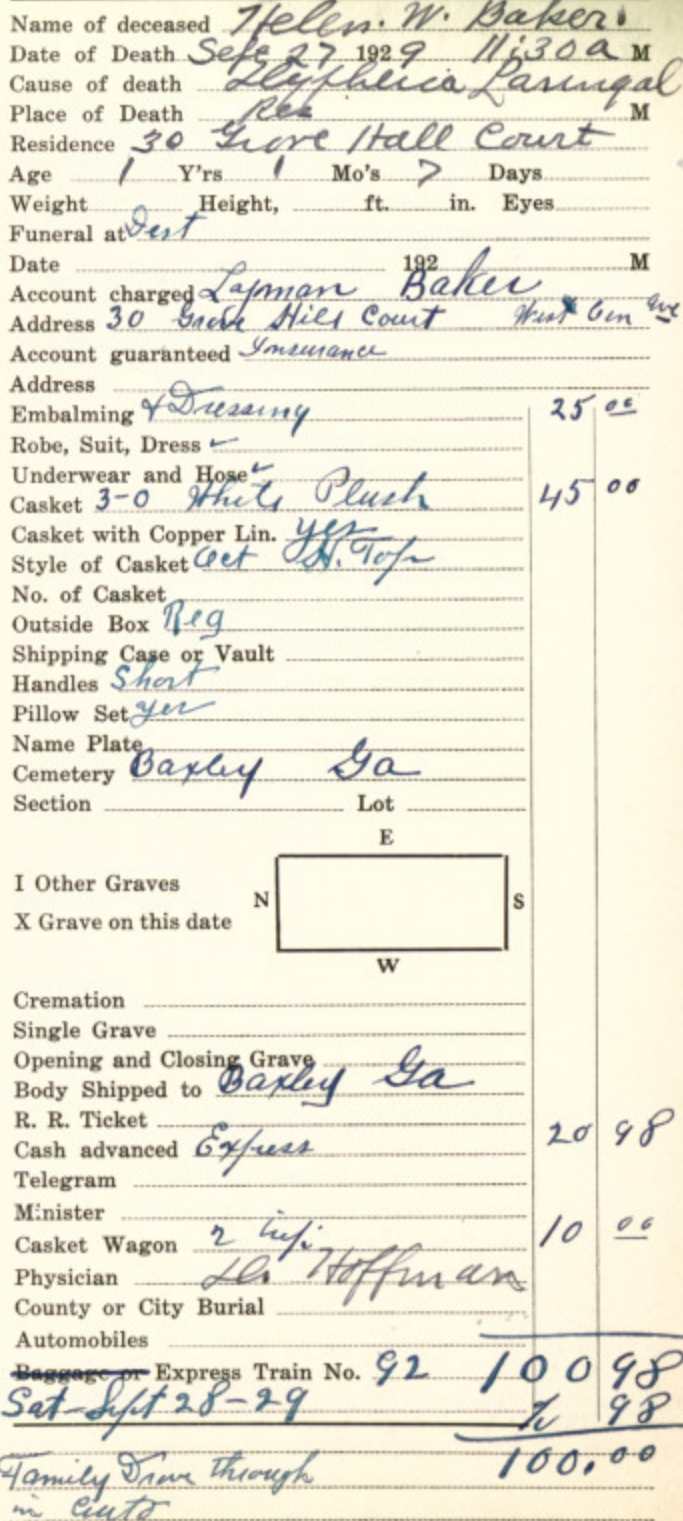 Name of deceased Helen. W. Baker.
Date of Death Sept 27 1929 11:30 a M
Cause of death Dyptheria Laringal
Place of Death Res M
Residence 30 Grove Hall Court
Age 1 Y'rs 1 Mo's 7 Days
Weight Height, ft. in. Eyes
Funeral at Dest
Date 192 M
Account charged Lapman Baker
Address 30 Grove Hill Court West Ave
Account guaranteed Insurance
Address
Embalming & Dressing 25 00
Robe, Suit, Dress ✓
Underwear and Hose ✓
Casket 3-0 White Plush 45 00
Casket with Copper Lin. yes
Style of Casket Oct H. Top
No. of Casket
Outside Box Reg
Shipping Case or Vault
Handles Short
Pillow Set yes
Name Plate
Cemetery Baxley Ga
Section Lot
E
I Other Graves
N S
X Grave on this date
W
Cremation
Single Grave
Opening and Closing Grave
Body Shipped to Baxley Ga
R. R. Ticket
Cash advanced Express 20 98
Telegram
Minister
Casket Wagon 2 10 00
Physician Dr. Hoffman
County or City Burial
Automobiles
Baggage or Express Train No. 92 100 98
Sat-Sept 28-29 98
100.00
Family Drove through
in Auto